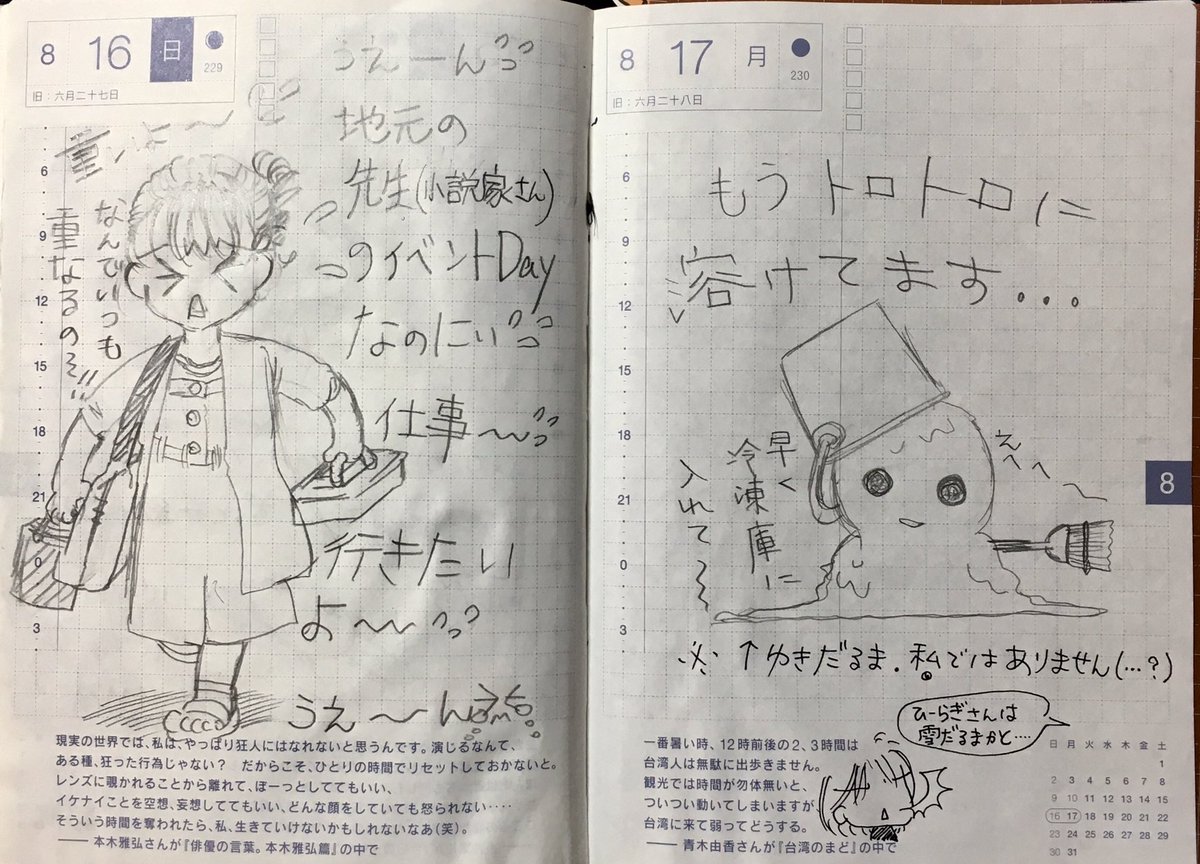 8 16 日
229
旧：六月二十七日
うえーん
地元の
先生(小説家さん)
のイベントDay
なのにぃ
仕事〜
行きたい
よ〜
うえ〜ん
重い〜
なんでいつも
重なるのぞ!!
6
9
12
15
18
21
0
3
現実の世界では、私は、やっぱり狂人にはなれないと思うんです。演じるなんて、
ある種、狂った行為じゃない？　だからこそ、ひとりの時間でリセットしておかないと。
レンズに覗かれることから離れて、ぼーっとしててもいい、
イケナイことを空想、妄想しててもいい、どんな顔をしていても怒られない‥‥
そういう時間を奪われたら、私、生きていけないかもしれないなあ（笑）。
――本木雅弘さんが『俳優の言葉。本木雅弘篇』の中で
8 17 月
230
旧：六月二十八日
もうトロトロに
溶けてます...
6
9
12
15
18
21
0
3
早く
冷凍庫に
入れて〜
えへへ
8
※ ↑ゆきだるま．私ではありません(…?)
ひーらぎさんは
雪だるまかと….
一番暑い時、12時前後の2、3時間は
台湾人は無駄に出歩きません。
観光では時間が勿体無いと、
ついつい動いてしまいますが、
台湾に来て弱ってどうする。
――青木由香さんが『台湾のまど』の中で
日 月 火 水 木 金 土
1
2 3 4 5 6 7 8
9 10 11 12 13 14 15
16 17 18 19 20 21 22
23 24 25 26 27 28 29
30 31